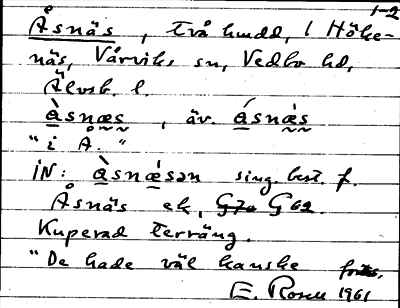 1-2
Åsnäs, två hmdd, l Höke-
näs, Vårviks sn, Vedbo hd,
Älvsb. l.
àsnæs, äv. ásnæ̀s
"i Å."
iN: àsnǽsən sing. best. f.
Åsnäs ek, G70 G62.
Kuperad terräng.
"De hade väl kanske
E. Rosell 1961